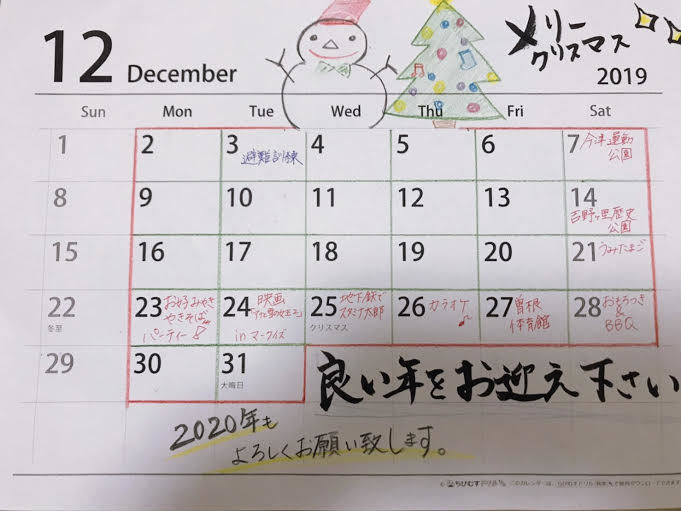 12 December
メリー
クリスマス
2019
Sun Mon Tue Wed Thu Fri Sat
1 2 3 4 5 6 7
避難訓練
今津運動
公園
8 9 10 11 12 13 14
吉野ヶ里歴史
公園
15 16 17 18 19 20 21
うみたまご
22 23 24 25 26 27 28
冬至
お好みやき
やきそば
パーティー
映画
in マークイズ
地下鉄で
スタミナ太郎
クリスマス
カラオケ
曽根
体育館
おもちつき
&
BBQ
29 30 31
大晦日
良い年をお迎え下さい
2020年も
よろしくお願い致します。
©ちびむすドリル